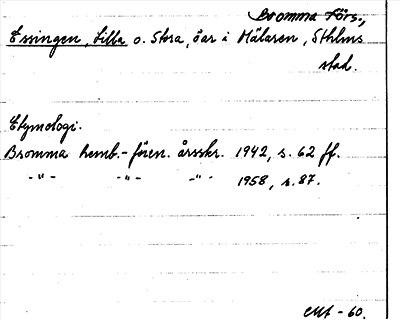 Bromma förs.,
Essingen, Lilla o. Stora, öar i Mälaren, Sthlms
stad.
Etymologi.
Bromma hemb.-fören. årsskr. 1942, s. 62 ff.
-"- -"- -"- 1958, s. 87.
-60.